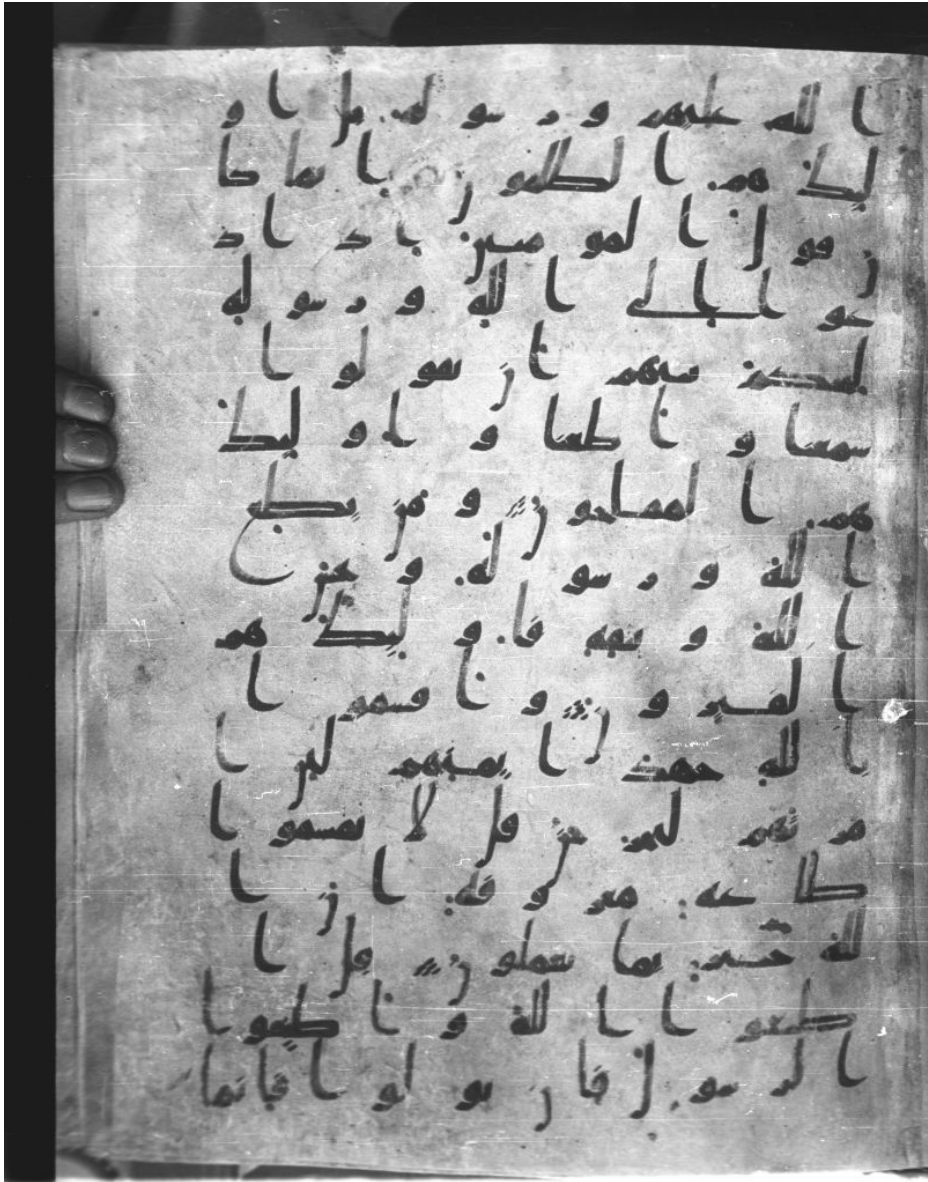 الله عليهم ورسوله بل او
لئك هم الظلمون انما كا
ن قول المومنين اذا د
عوا الى الله ورسوله
ليحكم بينهم ان يقولوا
سمعنا واطعنا واولئك
هم المفلحون ومن يطع
الله ورسوله ويخش
الله ويتقه فاولئك هم
الفيزون واقسموا
بالله جهد ايمنهم لين ا
مرتهم ليخرجن قل لا تقسموا
طاعة معروفة ان ا
لله خبير بما تعملون قل ا
طيعوا الله واطيعوا
الرسول فان تولوا فانما